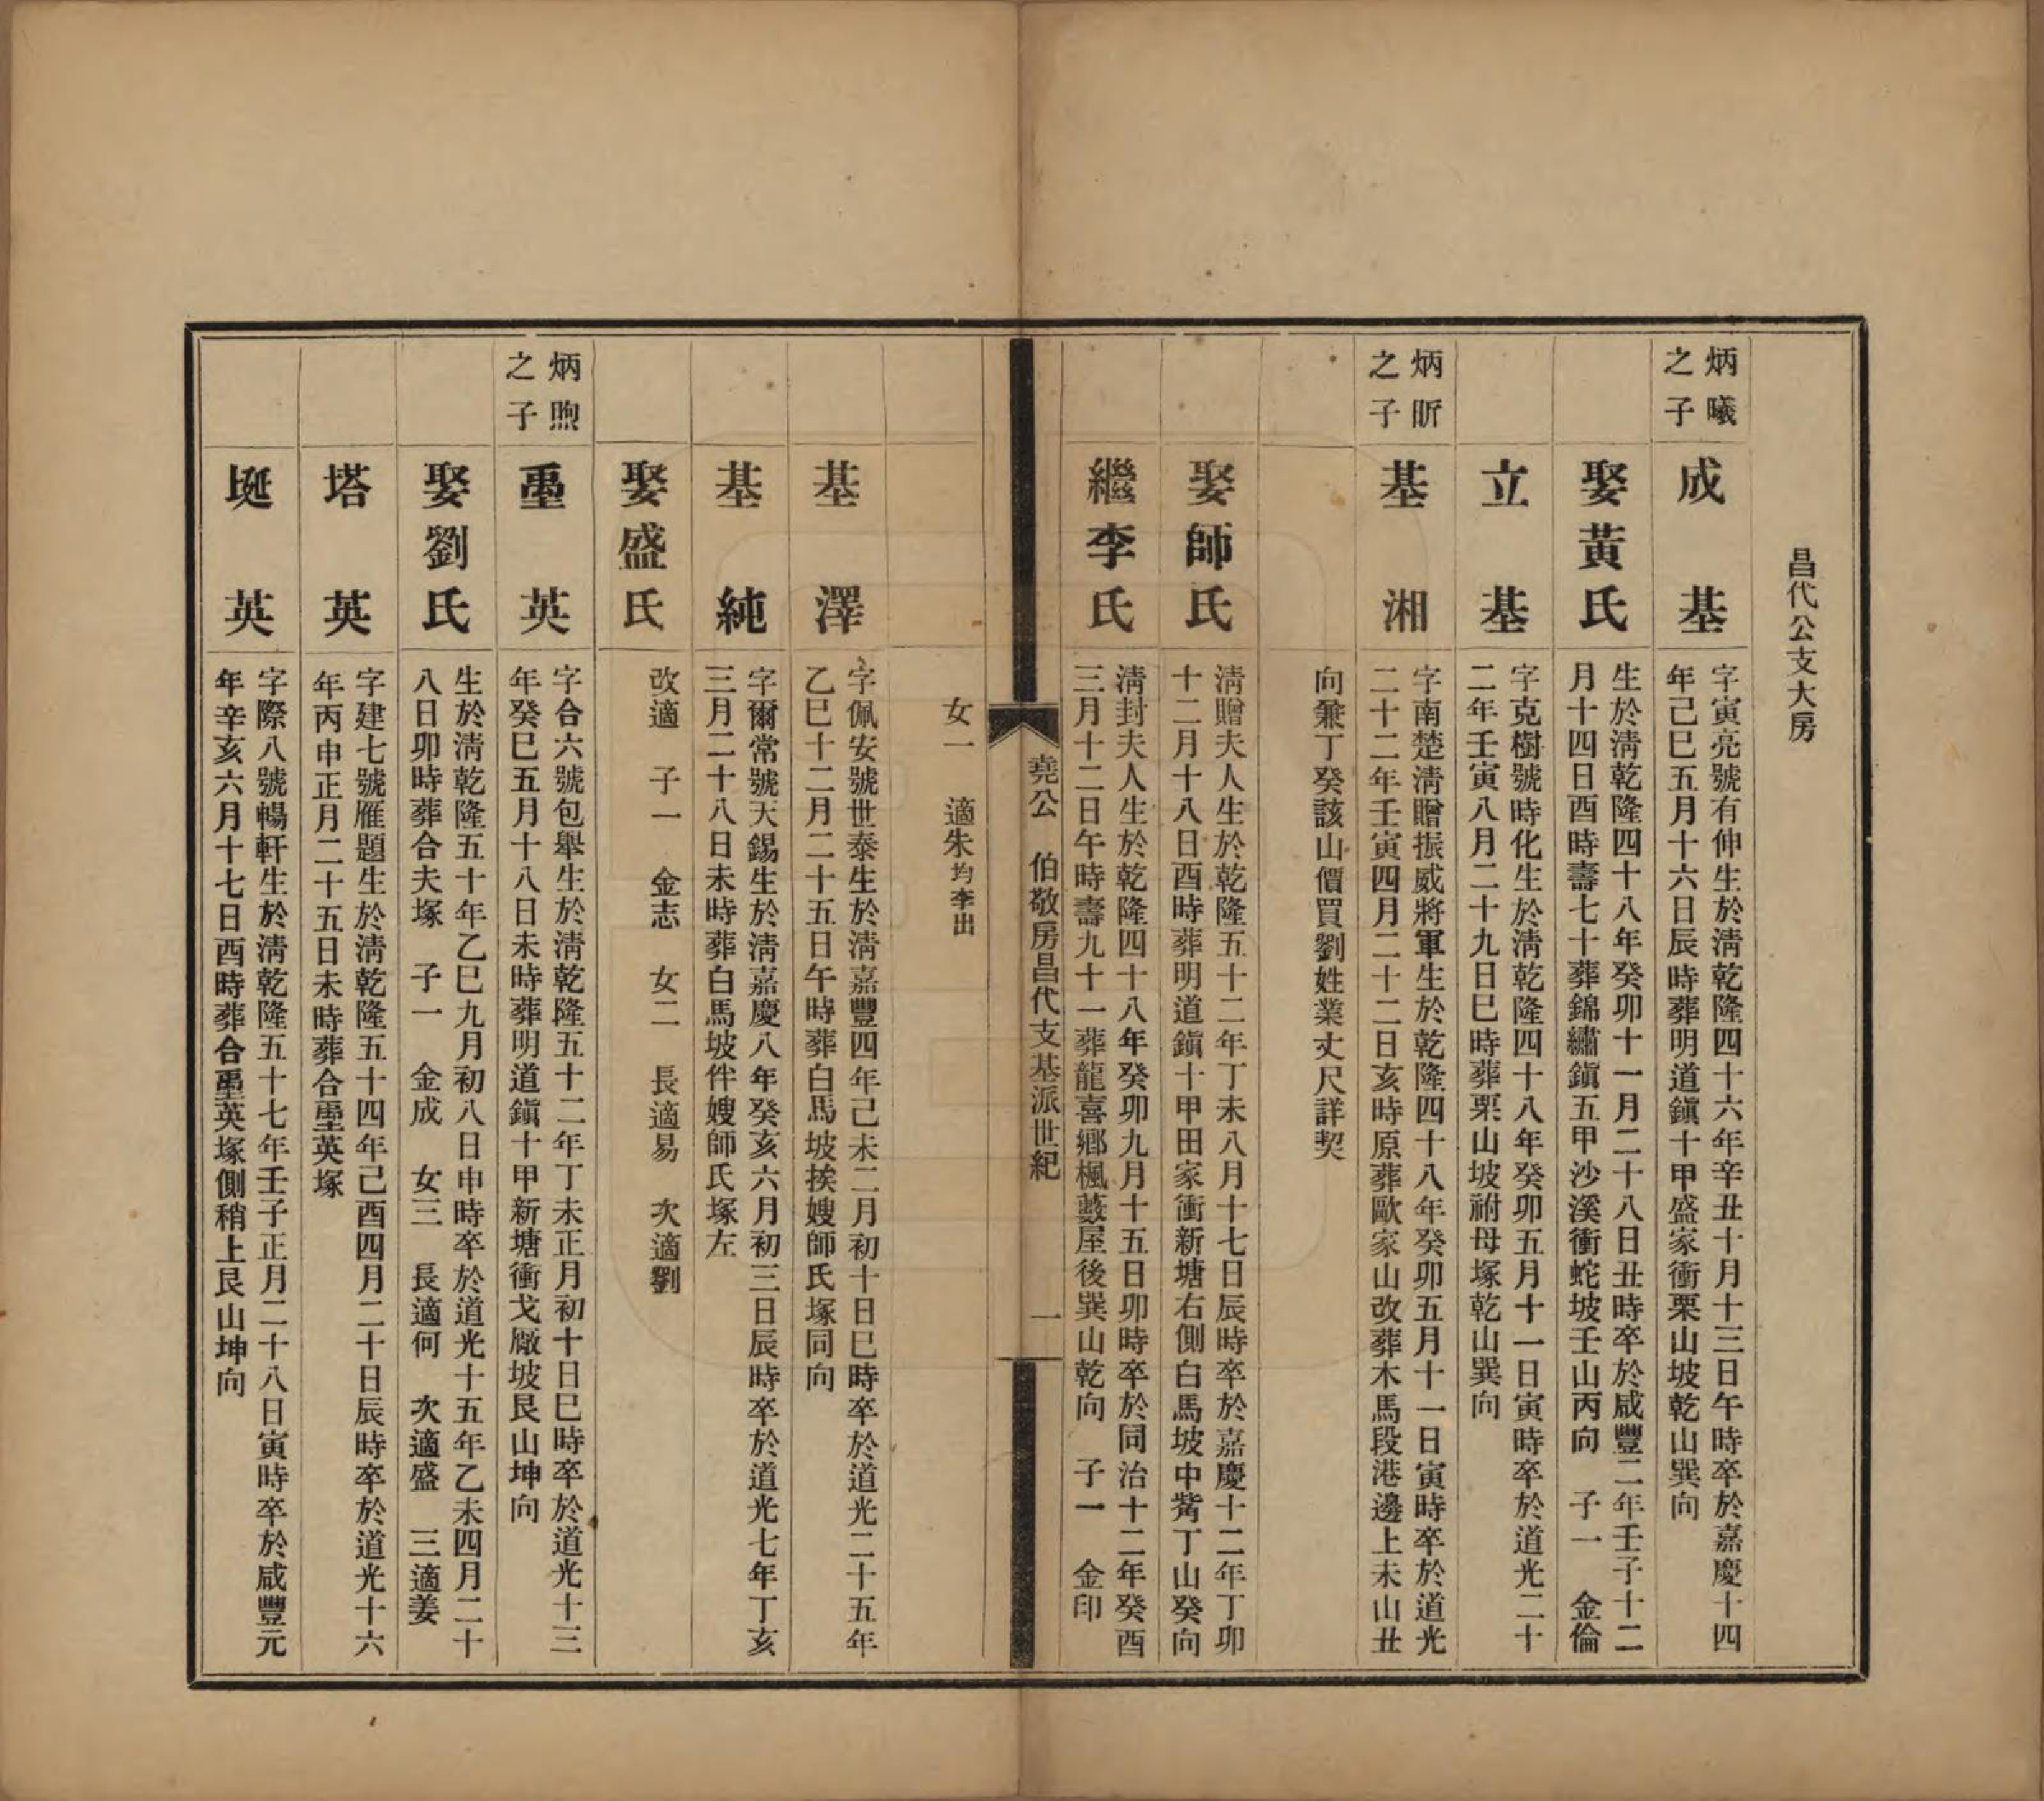 昌代公支大房
炳曦
之子
成基
字寅亮號有伸生於淸乾隆四十六年辛丑十月十三日午時卒於嘉慶十四
年己巳五月十六日辰時葬明道鎭十甲盛家衝栗山坡乾山巽向
娶黃氏
生於淸乾隆四十八年癸卯十一月二十八日丑時卒於咸豐二年壬子十二
月十四日酉時壽七十葬錦繡鎭五甲沙溪衝蛇坡壬山丙向 子一 金倫
立基
字克樹號時化生於淸乾隆四十八年癸卯五月十一日寅時卒於道光二十
二年壬寅八月二十九日巳時葬栗山坡祔母塚乾山巽向
炳昕
之子
基湘
字南楚淸贈振威將軍生於乾隆四十八年癸卯五月十一日寅時卒於道光
二十二年壬寅四月二十二日亥時原葬歐家山改葬木馬段港邊上未山丑
向兼丁癸該山價買劉姓業丈尺詳契
娶師氏
淸贈夫人生於乾隆五十二年丁未八月十七日辰時卒於嘉慶十二年丁卯
十二月十八日酉時葬明道鎭十甲田家衝新塘右側白馬坡中觜丁山癸向
繼李氏
淸封夫人生於乾隆四十八年癸卯九月十五日卯時卒於同治十二年癸酉
三月十二日午時壽九十一葬龍喜鄕楓藪屋後巽山乾向 子一 金印
堯公 伯敬房昌代支基派世紀 一
女一 適朱均李出
基澤
字佩安號世泰生於淸嘉豐四年己未二月初十日巳時卒於道光二十五年
乙巳十二月二十五日午時葬白馬坡挨嫂師氏塚同向
基純
字爾常號天錫生於淸嘉慶八年癸亥六月初三日辰時卒於道光七年丁亥
三月二十八日未時葬白馬坡伴嫂師氏塚左
娶盛氏
改適 子一 金志 女二 長適易 次適劉
炳煦
之子
英
字合六號包舉生於淸乾隆五十二年丁未正月初十日巳時卒於道光十三
年癸巳五月十八日未時葬明道鎭十甲新塘衝戈廠坡艮山坤向
娶劉氏
生於淸乾隆五十年乙巳九月初八日申時卒於道光十五年乙未四月二十
八日卯時葬合夫塚 子一 金成 女三 長適何 次適盛 三適姜
塔英
字建七號雁題生於淸乾隆五十四年己酉四月二十日辰時卒於道光十六
年丙申正月二十五日未時葬合英塚
埏英
字際八號暢軒生於淸乾隆五十七年壬子正月二十八日寅時卒於咸豐元
年辛亥六月十七日酉時葬合英塚側稍上艮山坤向